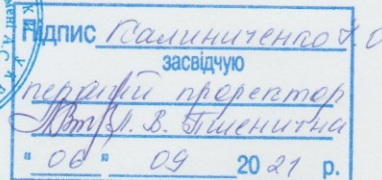 Підпис Калиниченко Н.О
засвідчую
перший проректор
Л. В. Пшенична
"06" 09 2021 р.